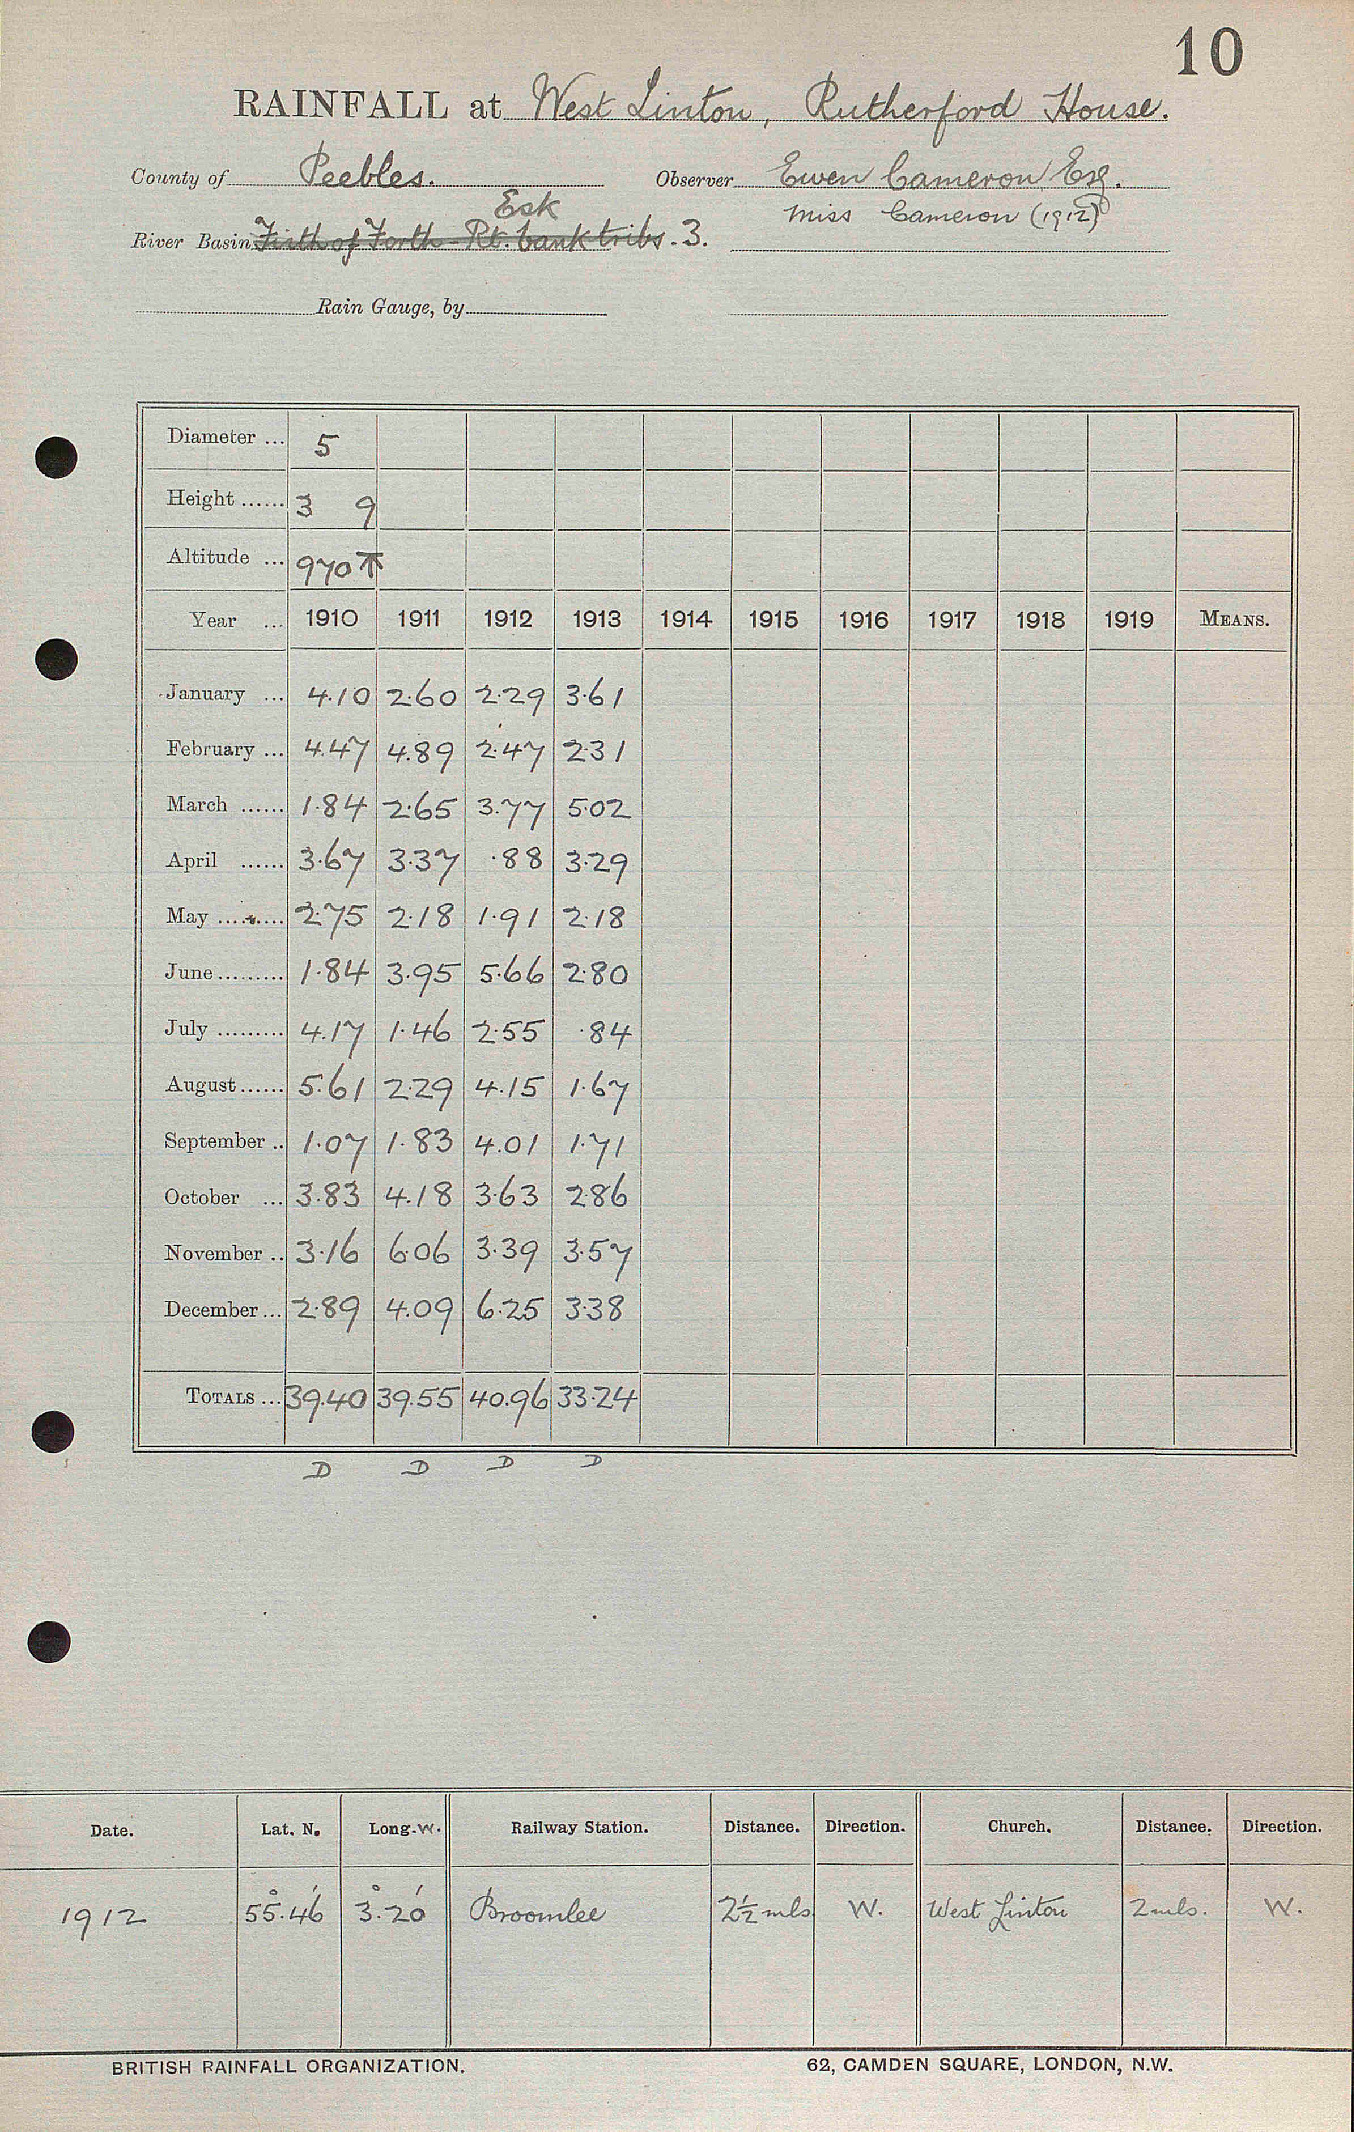 10
RAINFALL at West Linton, Rutherford House.
County of Peebles. Observer Ewen Cameron Esq.
Esk Miss Cameron (1912)
River Basin Firth of Forth - Rt. bank tribs. 3.
Rain Gauge, by
Diameter ... 5
Height ...... 3 9
Altitude ... 970
Year ... 1910 1911 1912 1913 1914 1915 1916 1917 1918 1919 MEANS.
January ... 4.10 2.60 2.29 3.61
February ... 4.47 4.89 2.47 2.31
March ...... 1.84 2.65 3.77 5.02
April ...... 3.67 3.37 .88 3.29
May ......... 2.75 2.18 1.91 2.18
June ......... 1.84 3.95 5.66 2.80
July ......... 4.17 1.46 2.55 .84
August ...... 5.61 2.29 4.15 1.67
September .. 1.07 1.83 4.01 1.71
October ... 3.83 4.18 3.63 2.86
November .. 3.16 6.06 3.39 3.57
December ... 2.89 4.09 6.25 3.38
TOTALS ... 39.40 39.55 40.96 33.24
D D D D
Date. Lat. N. Long. W. Railway Station. Distance. Direction. Church. Distance. Direction.
1912 55°.46′ 3°.20′ Broomlee 2½ mls W. West Linton 2 mls. W.
BRITISH RAINFALL ORGANIZATION. 62, CAMDEN SQUARE, LONDON, N.W.